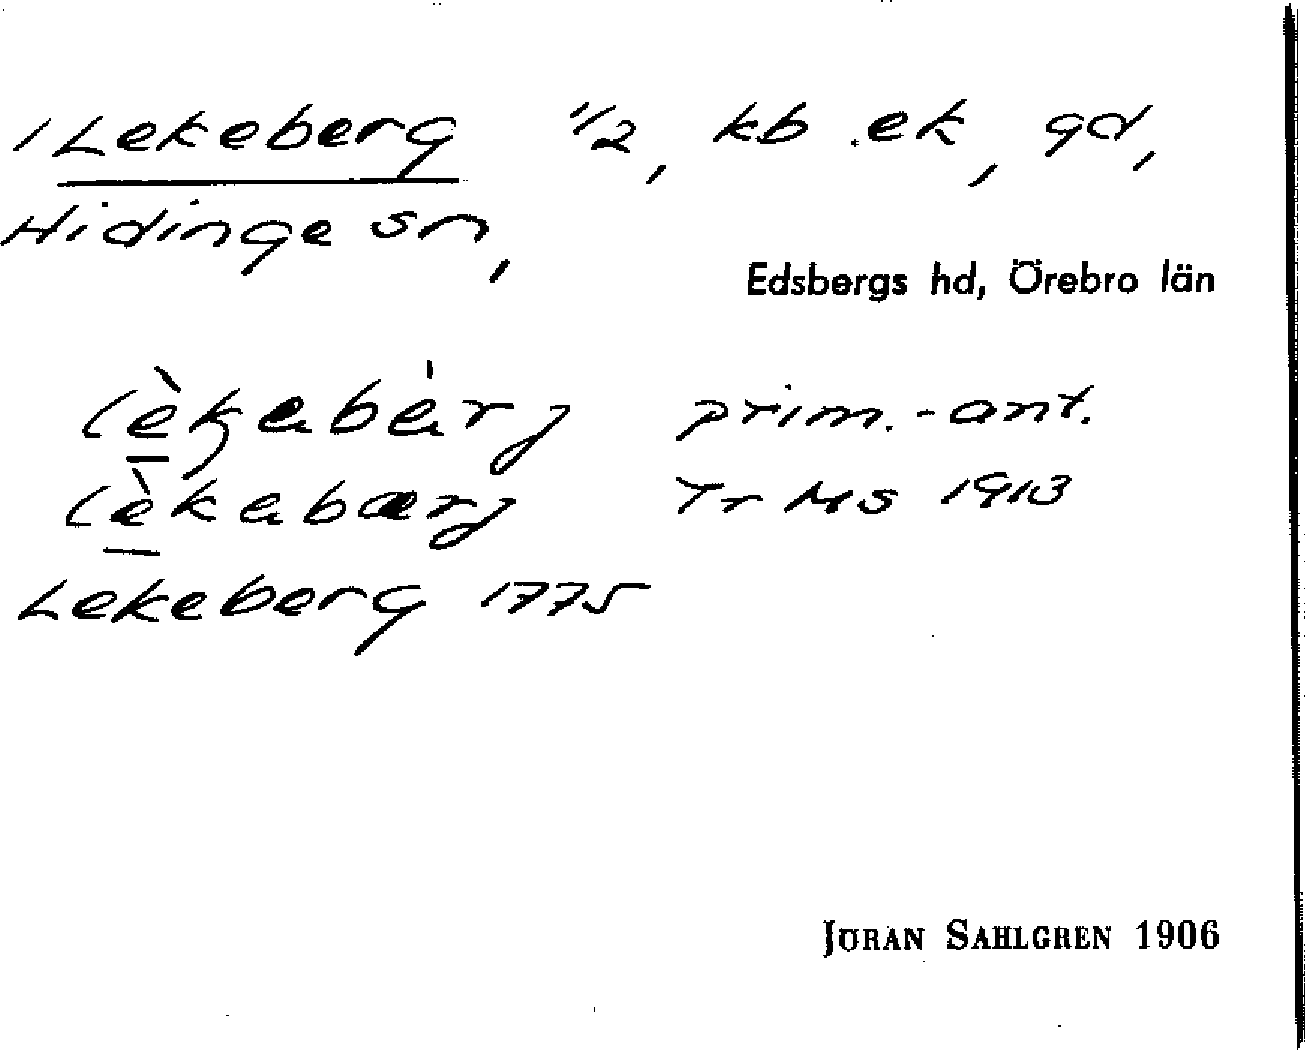 1 Lekeberg 1/2, kb.ek, gd,
Hidinge sn,
Edsbergs hd, Örebro län
prim.-ant.
Tr MS 1913
Lekeberg 1775
JÖRAN SAHLGREN 1906